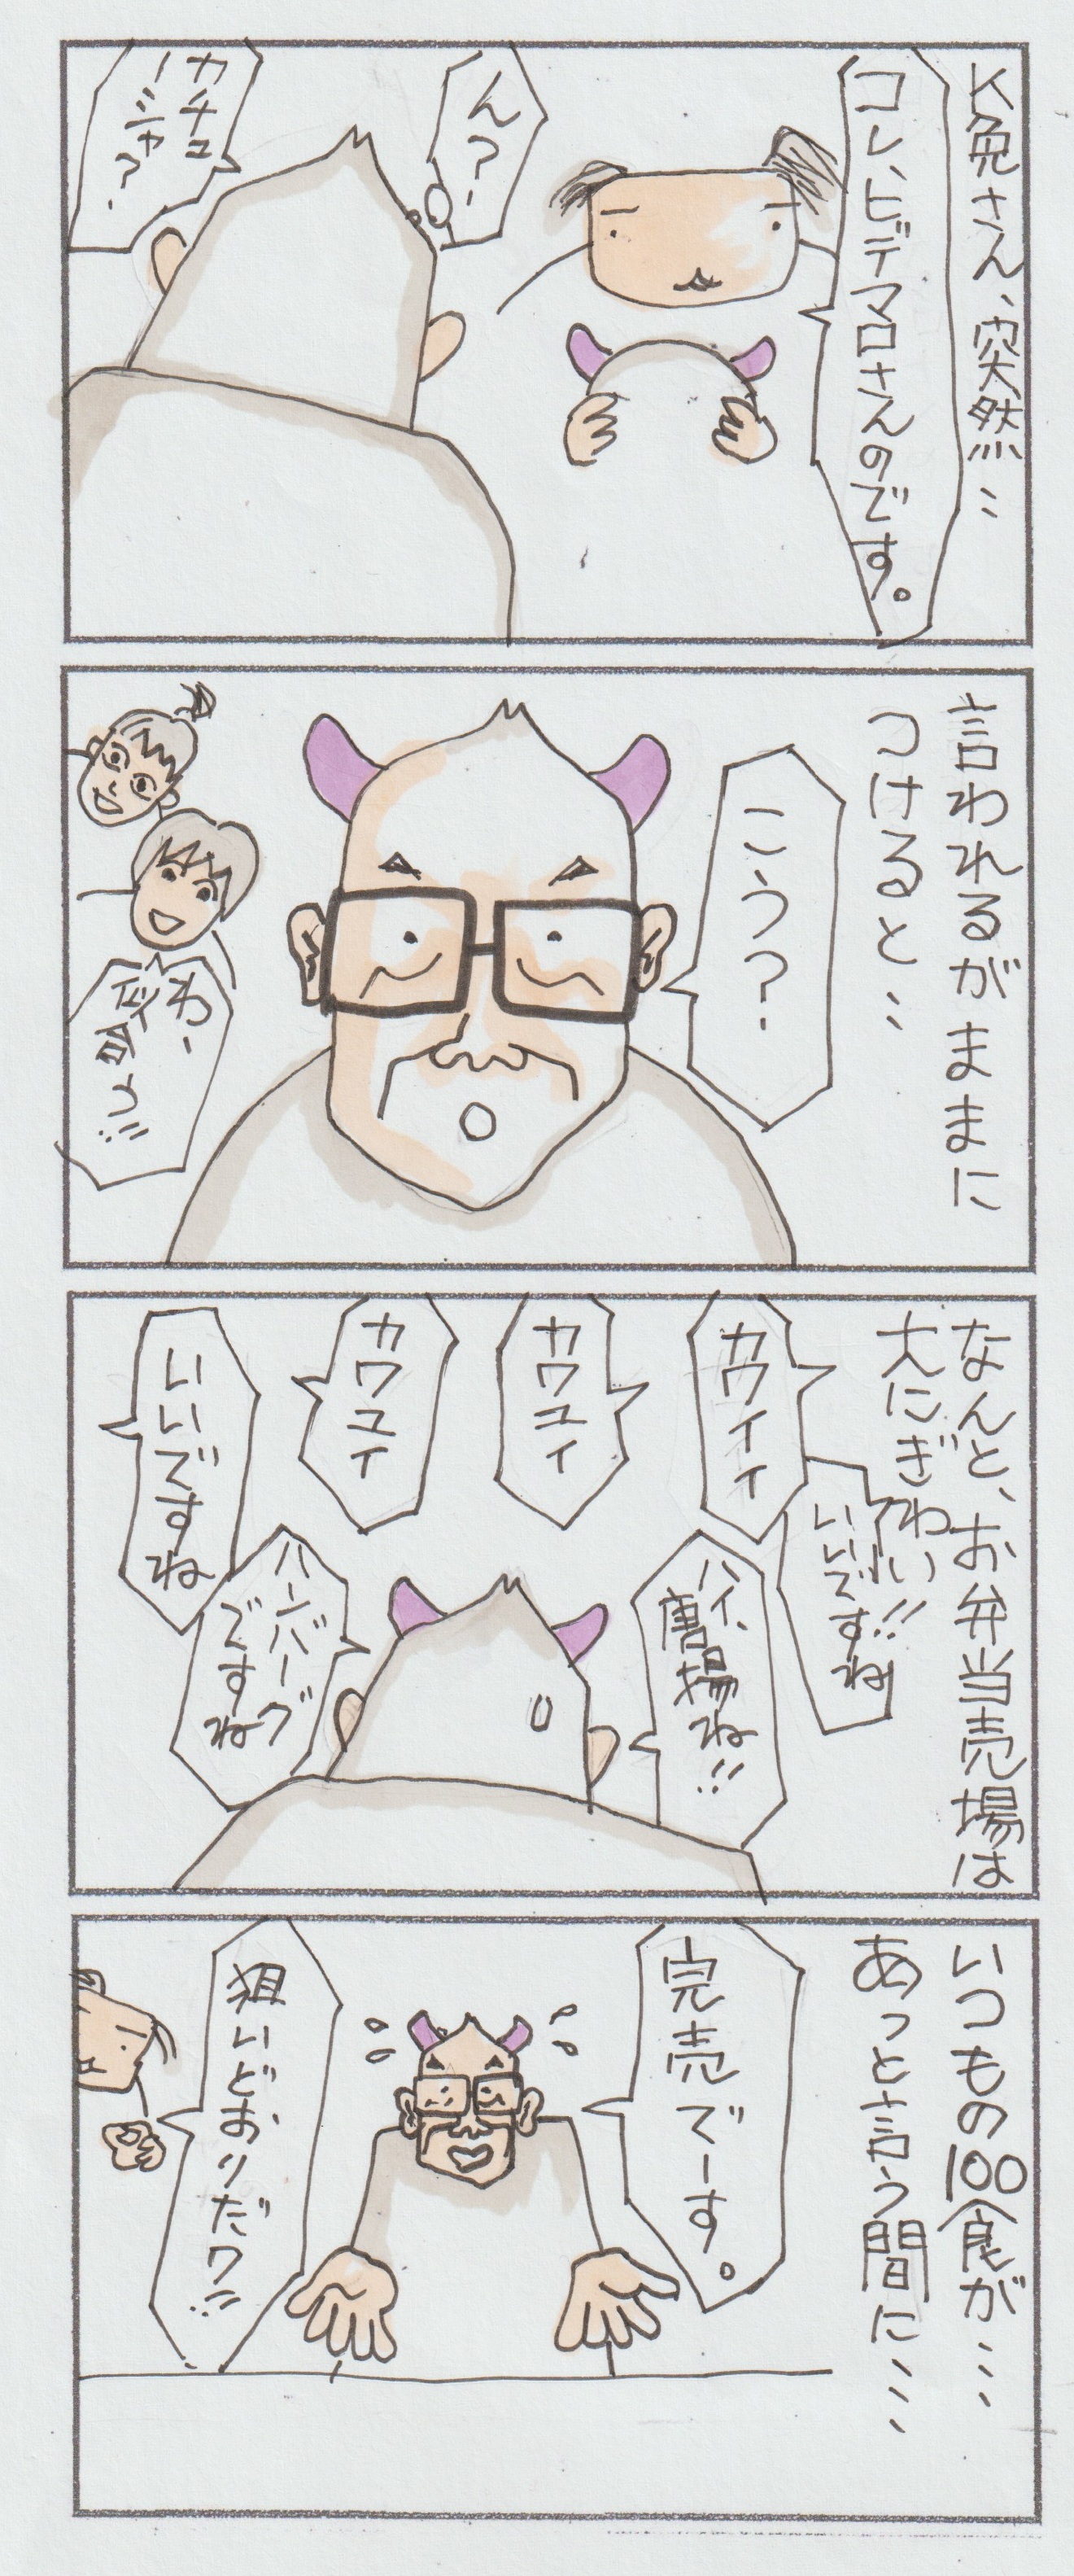 K兔さん、突然…
コレ、ヒデマロさんのです。
ん?
カチューシャ?
言われるがままに
つけると…
こう?
わー
なんと、お弁当売場は
大にぎわい!!
いいですね
カワイイ
カワユイ
カワユイ
いいですね
ハイ、
唐揚ね!!
ハンバーグ
ですね
いつもの100食が…
あっと言う間に…
完売でーす。
狙いどおりだワ!!